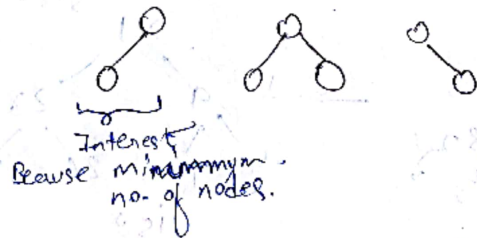 Interest
Beause minimmym
no. of nodes.